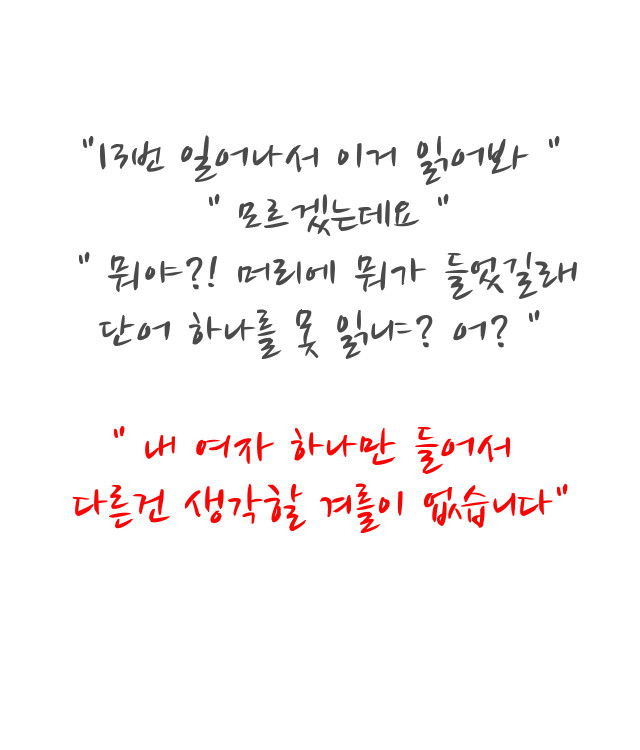 "13번 일어나서 이거 읽어봐 "
" 모르겠는데요 "
" 뭐야?! 머리에 뭐가 들었길래
단어 하나를 못 읽냐? 어? "
" 내 여자 하나만 들어서
다른건 생각할 겨를이 없습니다"